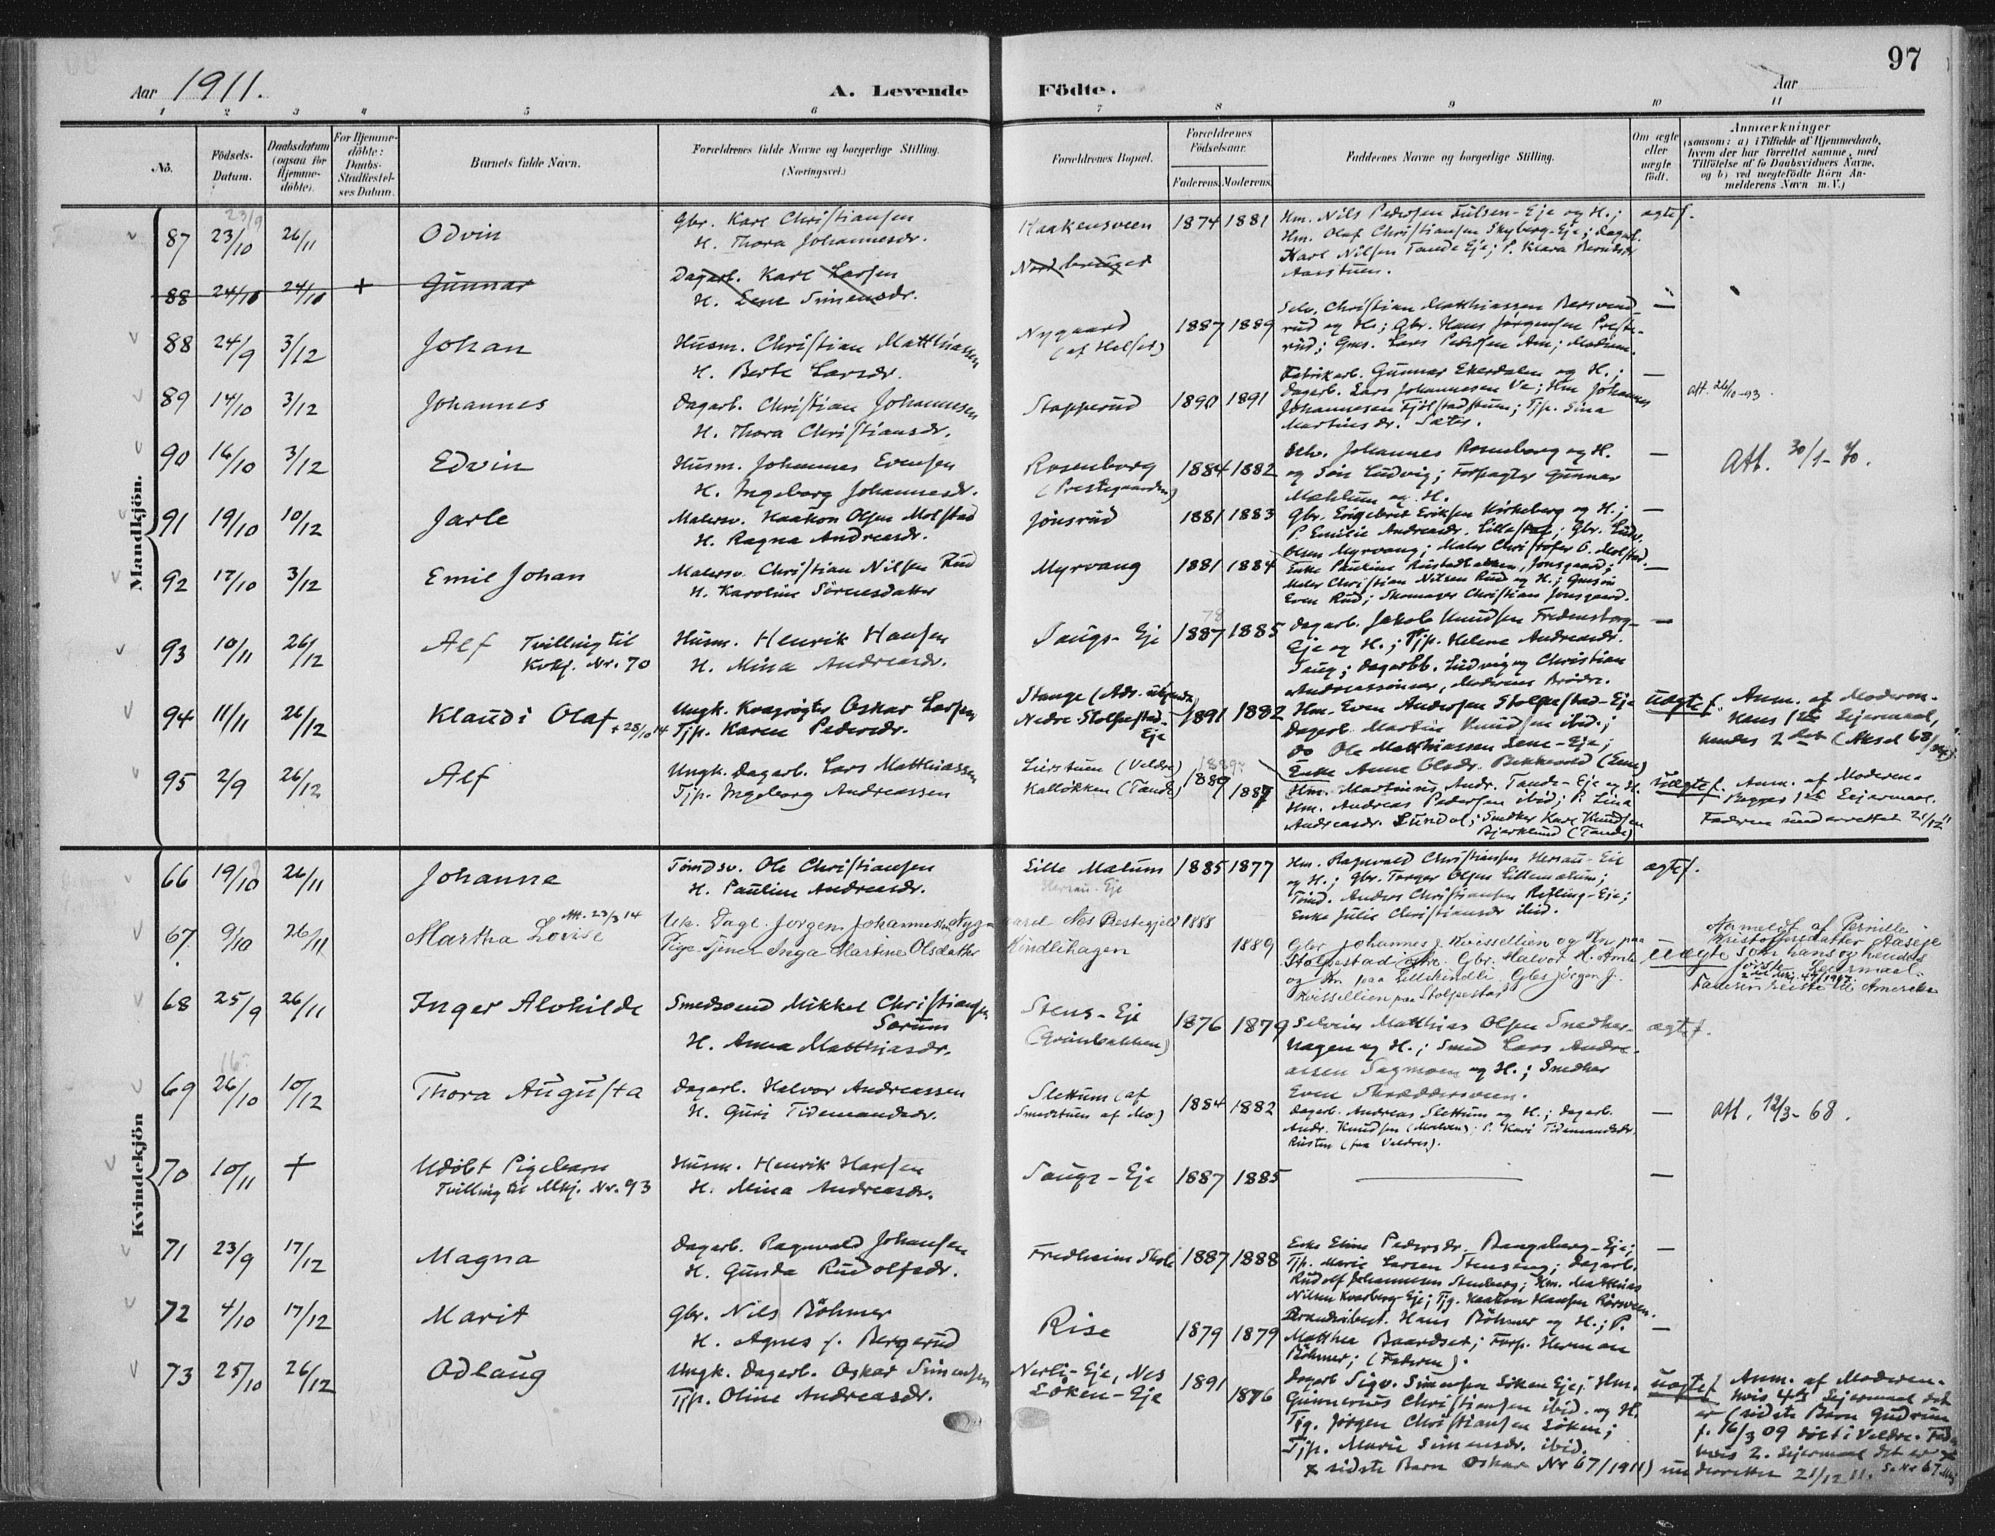 97
Aar 1911.
A. Levende
Födte.
Aar
1 2 3 4 5 6 7 8 9 10 11
No.
Födsels-
Datum.
Daabsdatum
(ogsaa for
Hjemme-
döbte).
For Hjemme-
döbte:
Daabs-
Stadfæstel-
ses Datum.
Barnets fulde Navn.
Forældrenes fulde Navne og borgerlige Stilling.
(Næringsvei.)
Forældrenes Bopæl.
Forældrenes
Födselsaar.
Faderens. Moderens.
Faddernes Navne og borgerlige Stilling.
Om ægte
eller
uægte
födt.
Anmærkninger
(saasom: a) i Tilfælde af Hjemmedaab,
hvem der har forrettet samme, med
Tilföielse af to Daabsvidners Navne,
og b) ved uægtefödte Börn An-
melderens Navn m. V.)
Mandkjön.
87 23/10 26/11 Odvin
Gbr. Karl Christiansen
H. Thora Johannesdr.
Haakensveen 1874 1881
Hm. Nils Pedersen -Eje og H.;
Hm. Olaf Christiansen Skyberg-Eje; Dagarb.
Karl Nilsen Tande Eje; P. Klara Berntsdr
Aarstuen.
ægtef.
88 24/10 24/10 + Gunnar
Dagarb. Karl Larsen
H. Lene Simensdr.
88 24/9 3/12 Johan
Husm. Christian Matthiassen
H. Berte Larsdr.
Nygaard
(af Helset)
1887 1889
Selv. Christian Matthiassen
rud og H.; Gbr. Hans Jørgensen Preste-
rud; Gms. Lars Pedersen Am; Moderen.
—
89 14/10 3/12 Johannes
Dagarb. Christian Johannesen
H. Thora Christiansdr.
Stopperud 1890 1891
Fabrikarb. Gunnar Ekerdalen og H.;
Dagarb. Lars Johannesen Ve; Hm Johannes
Johannesen Fjölstadstuen; Tjp. Sina
Martinsdr. Sater.
—
Att. 26/10-93.
90 16/10 3/12 Edvin
Husm. Johannes Evensen
H. Ingeborg Johannesdr.
Rosenborg
(Prestegaarden)
1884 1882
Selv. Johannes Rosenborg og H.
og Søn Ludvig; Forpagter Gunnar
Mæhlum og H.
—
Att. 30/1-70.
91 19/10 10/12 Jarle
Malersv. Haakon Olsen Molstad
H. Ragna Andreasdr.
Jønsrud 1881 1883
Gbr. Engebret Eriksen Kirkeberg og H.;
P. Emilie Andreasdr. Lillestad; Gbr. Ludv.
Olsen Myrvang; Maler Christofer O. Molstad.
—
92 17/10 3/12 Emil Johan
Malersv. Christian Nilsen Rud
H. Karoline Sörensdatter
Myrvang 1881 1884
Enke Pauline Jonsgaard;
Maler Christian Nilsen Rud og H.; Gmsøn
Even Rud; Skomager Christian Jonsgaard.
—
93 10/11 26/12 Alf Tvilling til
Kvkj. Nr. 70
Husm. Henrik Hansen
H. Mina Andreasdr.
Saugs-Eje 1887 1885
Dagarb. Jakob Knudsen Fredensborg-
Eje og H.; Tjp. Helene Andreasdr.
Saug; Dagarbb. Ludvig og Christian
Andreassønner, Moderens Brødre.
—
94 11/11 26/12 Klaudi Olaf + 28/10 14
Ungk. Kvægrøgter Oskar Larsen
Tjp. Karen Pedersdr.
Stange (Ads. ubekendt)
Nedre Stolpestad-
Eje
1891 1882
Hm. Even Andersen Stolpestad-Eje
Dagarb. Martin Knudsen ibid.;
Do Ole Matthiassen Lene-Eje;
Enke Anne Olsdr. Bekkevold (Lene)
uægtef.
Anm. af Moderen.
Hans 1ste Leiermaal,
hendes 2det
95 2/9 26/12 Alf
Ungk. Dagarb. Lars Matthiassen
Tjp. Ingeborg Andreassen
Lierstuen (Veldre)
Kalløkken (Tande)
1889 1887
Hm. Martinus Andr. Tande-Eje og H.
Hm. Andreas Pedersen ibid; P. Lina
Andreasdr. Lundal; Snedker Karl Knudsen
Bjerklund (Tande)
uægtef.
Anm. af Moderen.
Begges 1ste Leiermaal.
Faderen underrettet 21/12 11
Kvindekjön
66 19/10 26/11 Johanne
Tömdsv. Ole Christiansen
H. Pauline Andreasdr.
Lille Mælum 1885 1877
Hersau-Eje
Hm. Ragnvald Christiansen Hersau-Eie
og H.; Gbr. Torger Olsen Lillemælum;
Tömd. Anders Christiansen Refling-Eje;
Enke Julie Christiansdr ibid.
ægtef.
67 9/10 26/11 Martha Lovise Att. 23/3 14
Uk. Dagl. Jørgen Johannessen Nygaard
Pige Tjener Inga Martine Olsdatter
Nes Prestegjeld 1888
Kindlihagen 1889
Gbr Johannes J. Kvissellien og Kn paa
Stolpestad østre. Gbr. Halvor H. Amle
og Kn paa Lillekindli. Gbs Jörgen J.
Kvissellien paa Stolpestad
uægte
Anmeldt af Pernille
Kristoffersdatter Aaseje
som hans og hendes
første Leiermaal.
Faderen reiste til Amerika
68 25/9 26/11 Inger Alvhilde
Smedsvend Mikkel Christiansen
Sørum
H. Anna Matthiasdr.
Stens-Eje
(Grindbakken)
1876 1879
Selveier Matthias Olsen Snedker-
hagen og H.; Smed Lars Andre-
assen Sagmoen og H.; Snedker
Even Skræddersveen.
ægtef.
69 26/10 10/12 Thora Augusta
Dagarb. Halvor Andreassen
H. Guri Tidemandsdr.
Slettum (af
Smedstuen af Mo)
1884 1882
Dagarb. Andreas Slettum og H.; Dagarb.
Andr. Knudsen (Moelven); P. Kari Tidemandsdr.
Rusten (fra Valdres).
—
Att. 12/3-68.
70 10/11 + Udöbt Pigebarn
Tvilling til Mkj. Nr. 93
Husm. Henrik Hansen
H. Mina Andreasdr.
Saugs-Eje 1887 1885
—
71 23/9 17/12 Magna
Dagarb. Ragnvald Johansen
H. Gunda Rudolfsdr.
Fredheim Skole 1887 1888
Enke Eline Pedersdr. Bangsberg-Eje;
Tjp. Marie Larsen Stenseng; Dagarb.
Rudolf Johannessen Stenberg; Hm. Matthias
Nilsen Kvarberg-Eje; Tjg. Haakon Hansen Rørsveen.
—
72 4/10 17/12 Marit
Gbr. Nils Böhmer
H. Agnes f. Bergerud
Rise 1879 1879
Brandvibest. Hans Böhmer og H.; P.
Matthea Baardset; Forp. Herman
Böhmer; (Faderen).
—
73 25/10 26/12 Odlaug
Ungk. Dagarb. Oskar Simensen
Tjp. Oline Andreasdr.
Nerli-Eje, Nes
Løken-Eje
1891 1876
Dagarb Sigv. Simensen Løken Eje; Hm.
Gunnerius Christiansen ibid. og H.
Tjg. Jørgen Christiansen Løken;
Tjp. Marie Simensdr. ibid.
x sidste Barn Oskar Nr 67/1911)
uægtef
Anm. af Moderen.
hvis 4de Leiermaal det
er (sidste Barn Gudrun
f. 16/3 09 døbt i Veldre.
hvis 2. Leiermaal det er
underrettet 21/12 11.